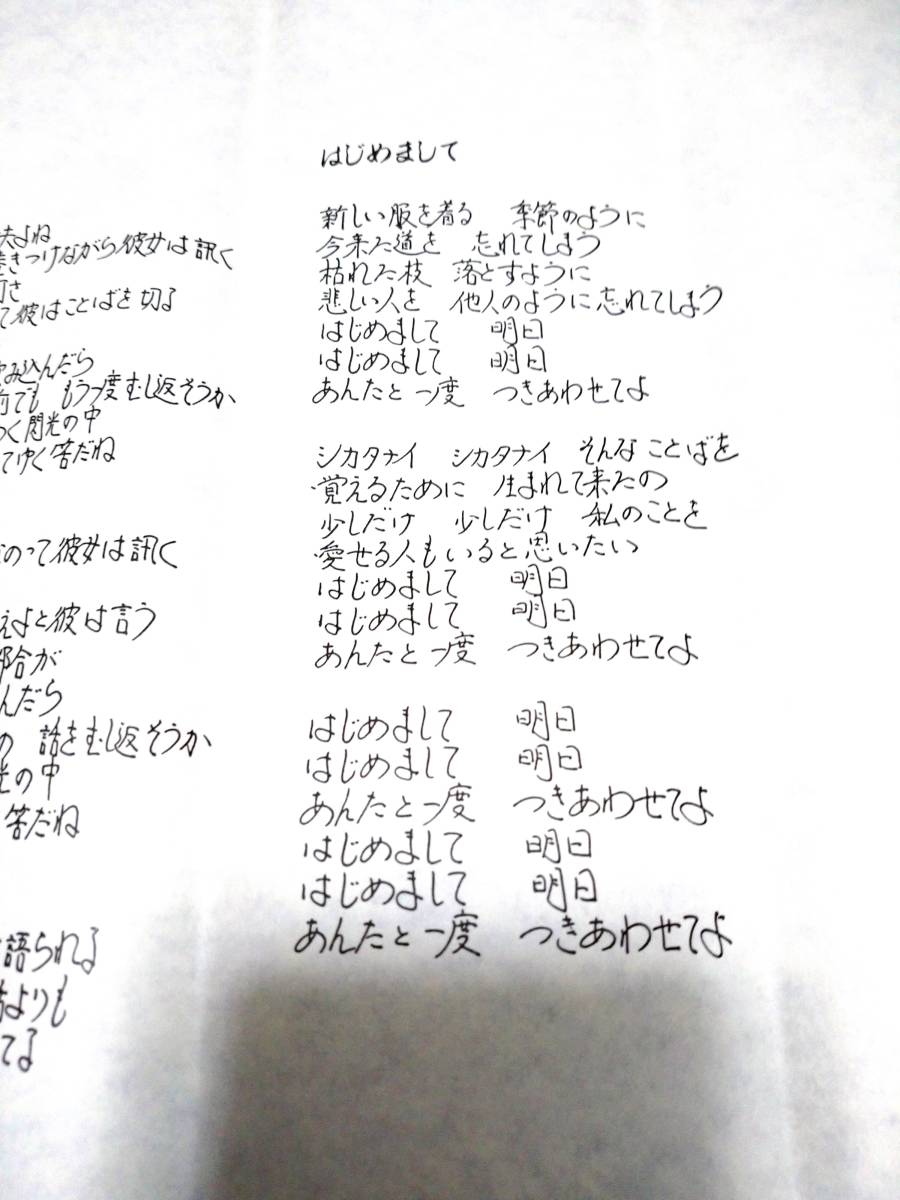 夫よね
巻きつけながら彼女は訊く
て彼はことばを切る
み込んだら
前でも もう一度むし返そうか
く閃光の中
てゆく答だね
のって彼女は訊く
えよと彼は言う
都合が
んだら
の 話をむし返そうか
光の中
答だね
語られる
よりも
てる
はじめまして
新しい服を着る 季節のように
今来た道を 忘れてしまう
枯れた枝 落とすように
悲しい人を 他人のように忘れてしまう
はじめまして 明日
はじめまして 明日
あんたと一度 つきあわせてよ
シカタナイ シカタナイ そんなことばを
覚えるために 生まれて来たの
少しだけ 少しだけ 私のことを
愛せる人もいると思いたい
はじめまして 明日
はじめまして 明日
あんたと一度 つきあわせてよ
はじめまして 明日
はじめまして 明日
あんたと一度 つきあわせてよ
はじめまして 明日
はじめまして 明日
あんたと一度 つきあわせてよ